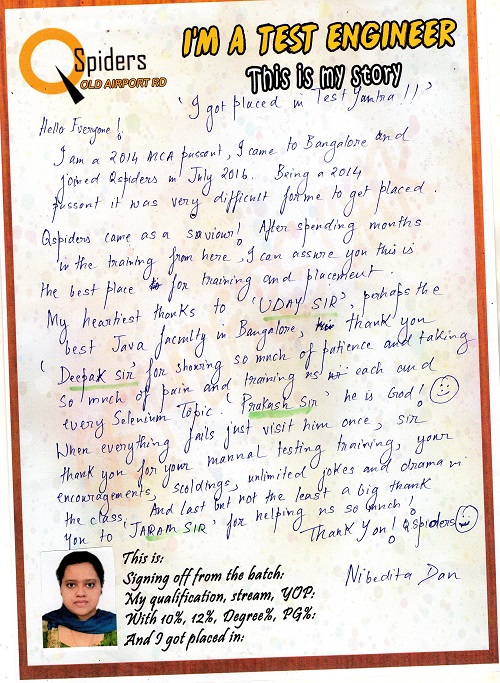 Q Spiders
OLD AIRPORT RD
I'M A TEST ENGINEER
This is my story
'I got placed in Test Yantra !!'
Hello Everyone!
I am a 2014 MCA passout, I came to Bangalore and
joined Qspiders in July 2016. Being a 2014
passout it was very difficult for me to get placed.
Qspiders came as a saviour! After spending months
in the training from here, I can assure you this is
the best place for training and placement.
My heartiest thanks to 'UDAY SIR', perhaps the
best Java faculty in Bangalore, thank you
'Deepak Sir' for showing so much of patience and taking
so much of pain and training us each and
every Selenium Topic. 'Prakash Sir' he is God!
When everything fails just visit him once, sir
thank you for your manual testing training, your
encouragements, scoldings, unlimited jokes and drama in
the class. And last but not the least a big thank
you to 'JARAM SIR' for helping us so much!
Thank You! Qspiders
Nibedita Dan
This is:
Signing off from the batch:
My qualification, stream, YOP:
With 10%, 12%, Degree%, PG%:
And I got placed in: